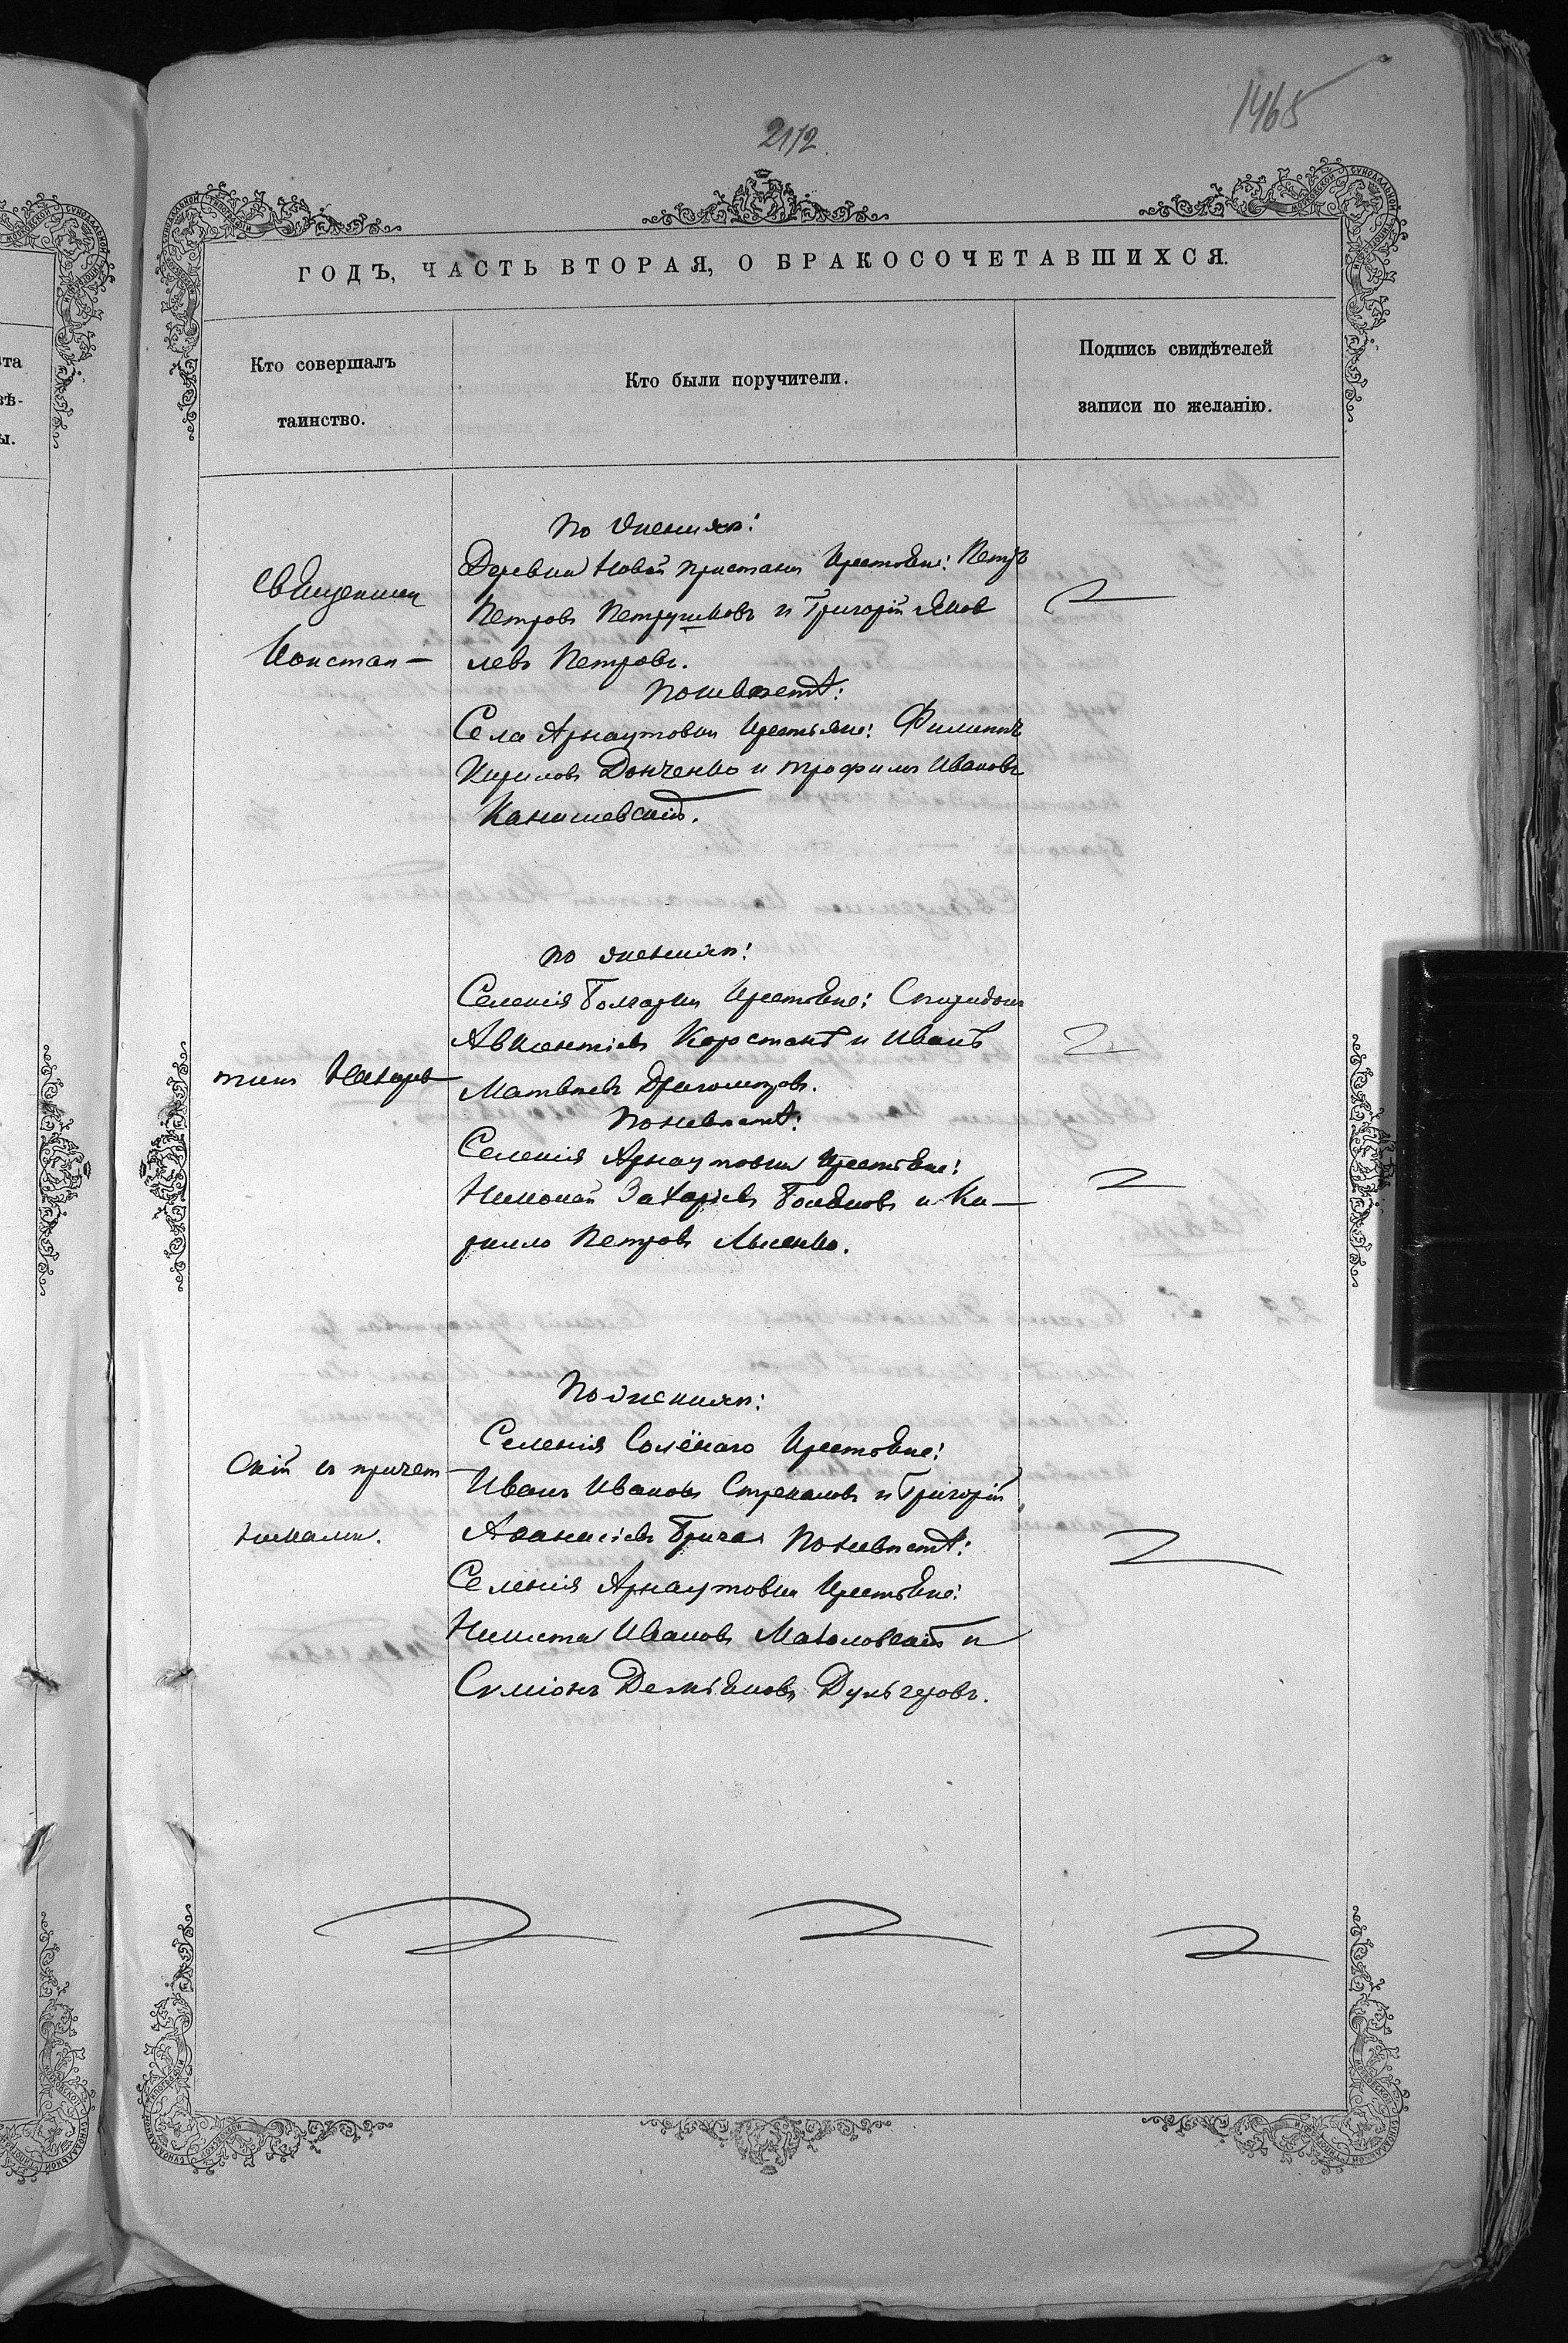 1468
2112.
ГОДЪ, ЧАСТЬ ВТОРАЯ, О БРАКОСОЧЕТАВШИХСЯ.
Кто совершалъ
таинство.
Кто были поручители.
Подпись свидѣтелей
записи по желанію.
Священник
Констан—
тин Назарев
скій съ причет
никами.
По женихѣ:
Деревни Новой пристани Крестьяне: Петръ
Петровъ Петрушковъ и Григорій Яков
левъ Петровъ.
По невѣстѣ:
Села Арнаутовки Крестьяне: Филиппъ
Кириловъ Донченко и Трофимъ Ивановъ
Канишевскій.
По женихѣ:
Селенія Болгарки Крестьяне: Спиридонъ
Авксентіевъ Коростанъ и Иванъ
Матвѣевъ Драгомировъ.
По невѣстѣ:
Селенія Арнаутовки Крестьяне:
Николай Захаріевъ и Ки—
рилло Петровъ Лысенко.
По женихѣ:
Селенія Солёнаго Крестьяне:
Иванъ Ивановъ Стрекаловъ и Григорій
Аѳанасіевъ Грича По невѣстѣ:
Селенія Арнаутовки Крестьяне:
Никита Ивановъ и
Симіонъ Демьяновъ Дульгеровъ.